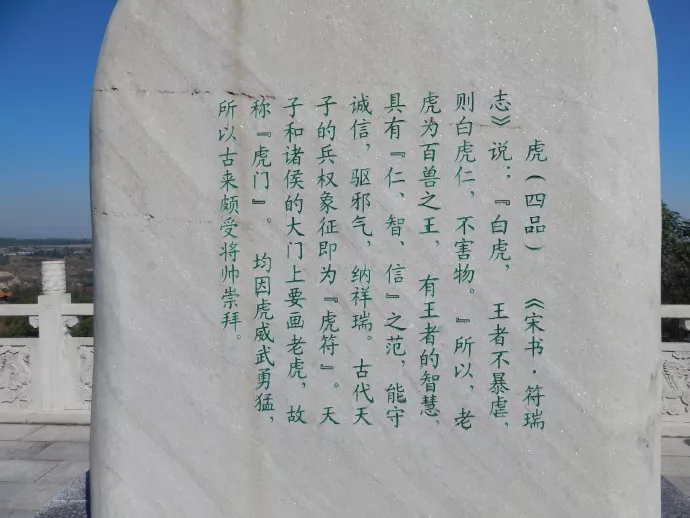 虎(四品) 《宋书·符瑞
志》说:『白虎, 王者不暴虐,
则白虎仁, 不害物。』所以, 老
虎为百兽之王, 有王者的智慧,
具有『仁、智、信』之范, 能守
诚信, 驱邪气, 纳祥瑞。 古代天
子的兵权象征即为『虎符』。 天
子和诸侯的大门上要画老虎, 故
称『虎门』。 均因虎威武勇猛,
所以古来颇受将帅崇拜。